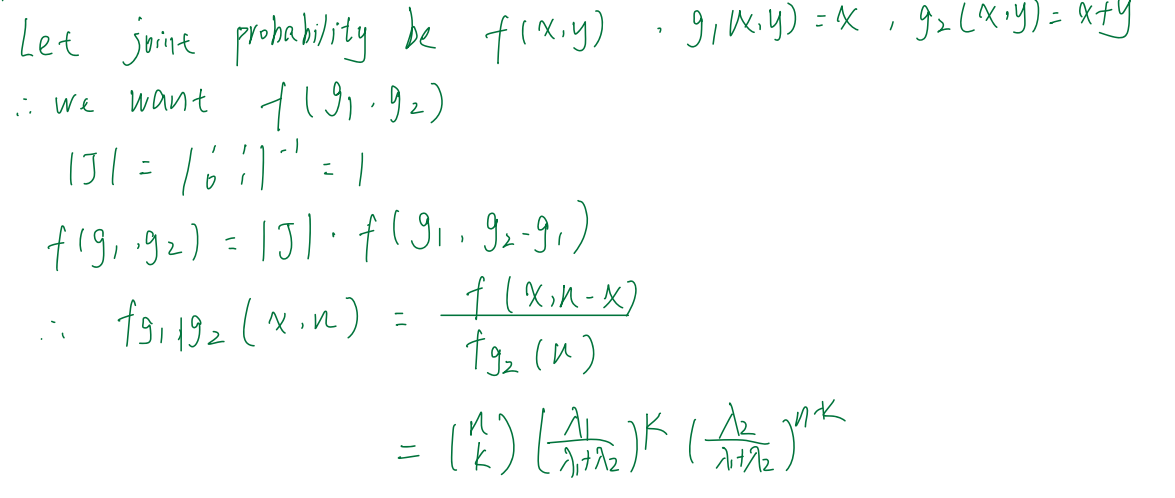 Let joint probability be f(x,y) , g₁(x,y) = x , g₂(x,y) = x+y
∴ we want f(g₁, g₂)
|J| = |1 1; 0 1|⁻¹ = 1
f(g₁, g₂) = |J| · f(g₁, g₂-g₁)
∴ f_{g₁|g₂}(x,n) = f(x,n-x) / f_{g₂}(n)
= (n k) (λ₁/(λ₁+λ₂))^k (λ₂/(λ₁+λ₂))^{n-k}